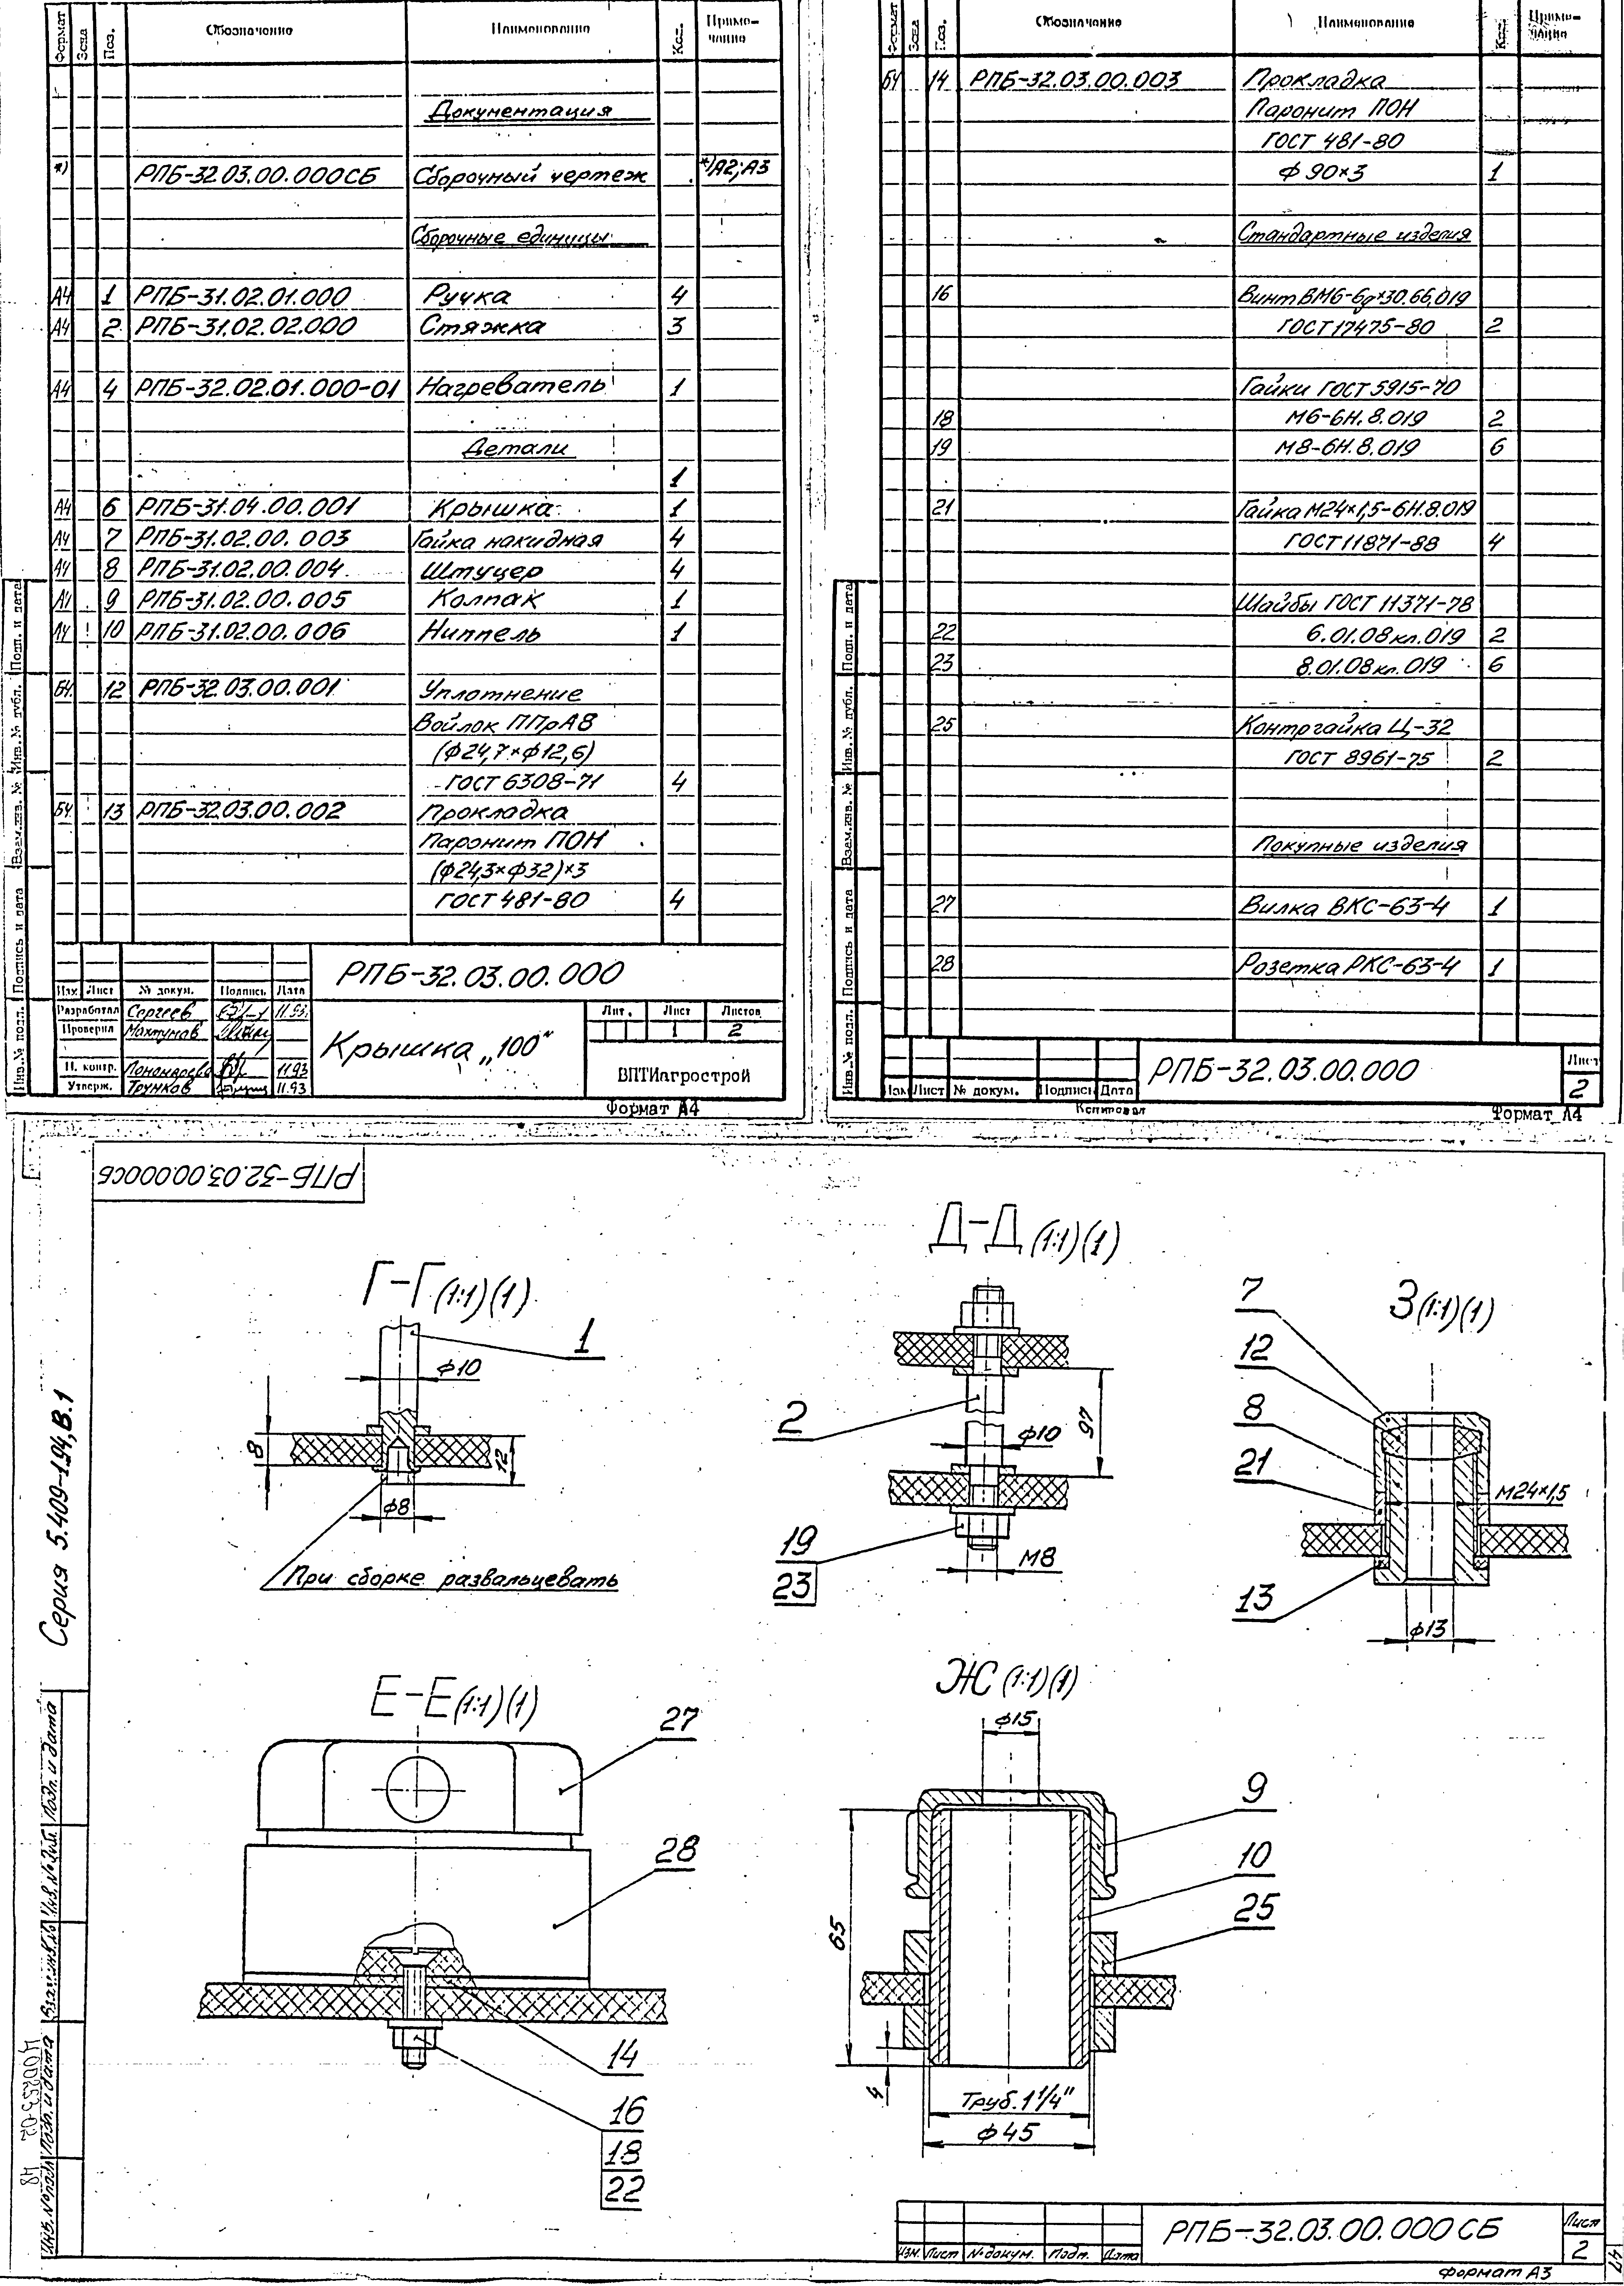 Формат Зона Поз. Обозначение Наименование Кол. Приме-
чание
Документация
*) РПБ-32.03.00.000СБ Сборочный чертеж *)А2;А3
Сборочные единицы
А4 1 РПБ-31.02.01.000 Ручка 4
А4 2 РПБ-31.02.02.000 Стяжка 3
А4 4 РПБ-32.02.01.000-01 Нагреватель 1
Детали
1
А4 6 РПБ-31.04.00.001 Крышка 1
А4 7 РПБ-31.02.00.003 Гайка накидная 4
А4 8 РПБ-31.02.00.004 Штуцер 4
А4 9 РПБ-31.02.00.005 Колпак 1
А4 10 РПБ-31.02.00.006 Ниппель 1
БЧ. 12 РПБ-32.03.00.001 Уплотнение
Войлок ППрА8
(ф24,7×ф12,6)
ГОСТ 6308-71 4
БЧ 13 РПБ-32.03.00.002 Прокладка
Паронит ПОН
(ф24,3×ф32)×3
ГОСТ 481-80 4
Инв.№ подл. Подпись и дата Взам.инв. № Инв.№ дубл. Подп. и дата
РПБ-32.03.00.000
Изм. Лист № докум. Подпись Дата
Разработал Сергеев 11.93
Проверил Махтумов
Н. контр. Пономарева 11.93
Утверж. Трунков 11.93
Крышка „100"
Лит. Лист Листов
1 2
ВПТИагрострой
Формат А4
Формат Зона Поз. Обозначение Наименование Кол. Приме-
чание
БЧ 14 РПБ-32.03.00.003 Прокладка
Паронит ПОН
ГОСТ 481-80
ф 90×3 1
Стандартные изделия
16 Винт ВМ6-6g×30.66.019
ГОСТ 17475-80 2
Гайки ГОСТ 5915-70
18 М6-6Н.8.019 2
19 М8-6Н.8.019 6
21 Гайка М24×1,5-6Н.8.019
ГОСТ 11871-88 4
Шайбы ГОСТ 11371-78
22 6.01.08кп.019 2
23 8.01.08кп.019 6
25 Контргайка Ц-32
ГОСТ 8961-75 2
Покупные изделия
27 Вилка ВКС-63-4 1
28 Розетка РКС-63-4 1
Инв.№ подл. Подпись и дата Взам.инв. № Инв.№ дубл. Подп. и дата
Изм Лист № докум. Подпись Дата
РПБ-32.03.00.000
Лист
2
Копировал
Формат А4
РПБ-32.03.00.000СБ
Г-Г (1:1)(1)
1
ф10
8
12
ф8
При сборке развальцевать
Д-Д (1:1)(1)
2
97
ф10
19
23
М8
З (1:1)(1)
7
12
8
21
М24×1,5
13
ф13
Е-Е (1:1)(1)
27
28
14
16
18
22
Ж (1:1)(1)
ф15
9
10
25
65
4
Труб. 1 1/4"
ф45
Серия 5.409-194, В.1
Инв. № подл Подп. и дата Взам.инв.№ Инв.№ дубл. Подп. и дата
48
Изм. Лист № докум. Подп. Дата
РПБ-32.03.00.000СБ
Лист
2
Формат А3
47